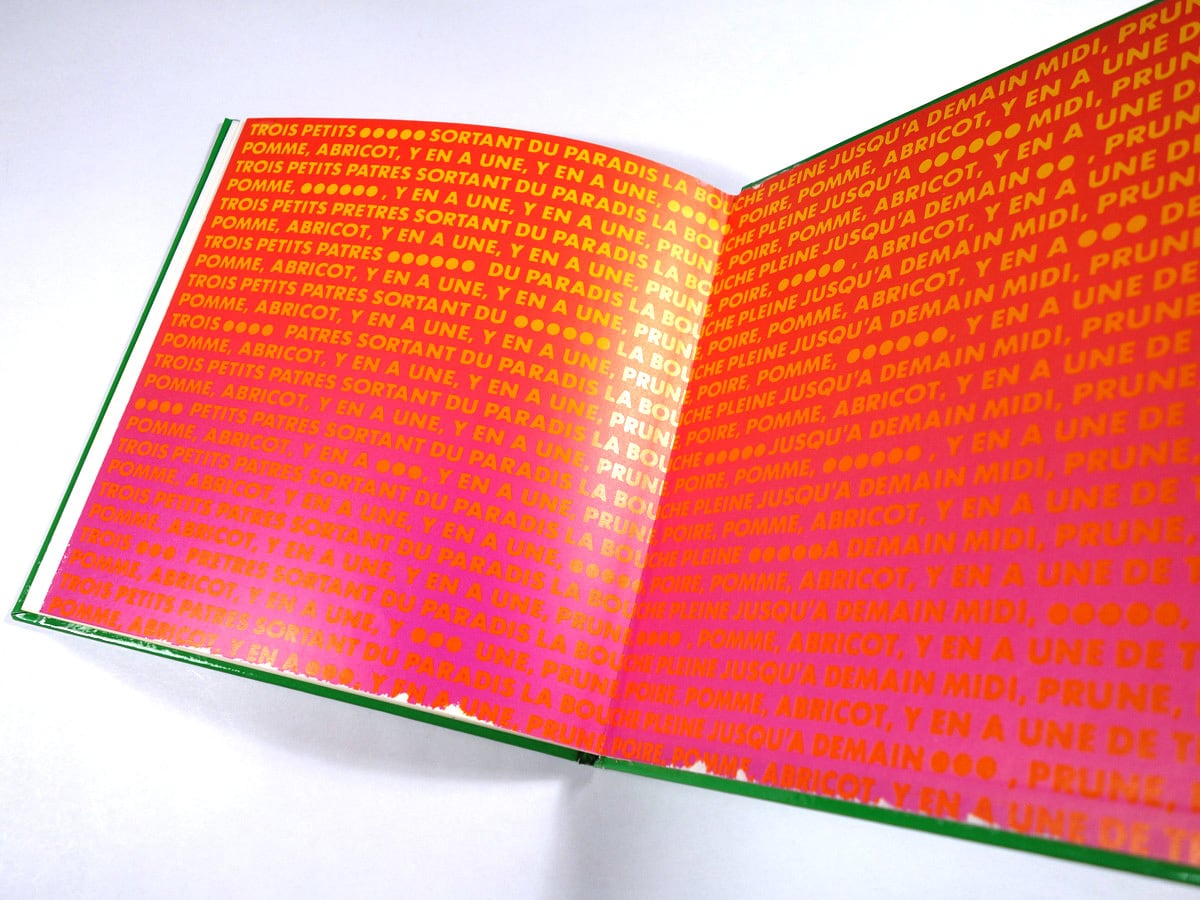 TROIS PETITS ●●●●● SORTANT DU PARADIS LA BOU
POMME, ABRICOT, Y EN A UNE, Y EN A UNE, ●●●●●
TROIS PETITS PATRES SORTANT DU PARADIS LA BOU
POMME, ●●●●●● , Y EN A UNE, Y EN A UNE, PRUNE
TROIS PETITS PRETRES SORTANT DU PARADIS LA BOU
POMME, ABRICOT, Y EN A UNE, Y EN A UNE, PRUNE
TROIS PETITS PATRES ●●●●●● DU PARADIS LA BOU
POMME, ABRICOT, Y EN A UNE, Y EN A UNE, PRUNE
TROIS PETITS PATRES SORTANT DU ●●●●●● LA BOU
POMME, ABRICOT, Y EN A UNE, Y EN A UNE, PRUNE
TROIS ●●●● PATRES SORTANT DU PARADIS LA BOU
POMME, ABRICOT, Y EN A UNE, Y EN A UNE, PRUNE
TROIS PETITS PATRES SORTANT DU PARADIS LA BOU
POMME, ABRICOT, Y EN A UNE, Y EN A UNE, PRUNE
●●●● PETITS PATRES SORTANT DU PARADIS LA BOU
POMME, ABRICOT, Y EN A ●●●, Y EN A UNE, PRUNE
TROIS PETITS PATRES SORTANT DU PARADIS LA BOU
POMME, ABRICOT, Y EN A UNE, Y EN A UNE, ●●●●●
TROIS PETITS PATRES SORTANT DU PARADIS LA BOU
POMME, ABRICOT, Y EN A UNE, Y EN A UNE, PRUNE
TROIS ●●● PRETRES SORTANT DU PARADIS LA BOU
POMME, ABRICOT, Y EN A UNE, Y ●●● UNE, PRUNE
TROIS PETITS PATRES SORTANT DU PARADIS LA BOU
POMME, ABRICOT, Y EN A ●●●, Y EN A UNE, PRUNE
CHE PLEINE JUSQU'A DEMAIN MIDI, PRUN
POIRE, POMME, ABRICOT, Y EN A UNE D
CHE PLEINE JUSQU'A ●●●●●● MIDI, PRUN
POIRE, POMME, ABRICOT, Y EN A UNE D
CHE PLEINE JUSQU'A DEMAIN ●● , PRUN
POIRE, ●●●● , ABRICOT, Y EN A UNE DE
CHE PLEINE JUSQU'A DEMAIN MIDI, PRUN
POIRE, POMME, ABRICOT, Y EN A ●●● DE
CHE PLEINE JUSQU'A DEMAIN MIDI, PRUNE
POIRE, POMME, ●●●●●● , Y EN A UNE DE
CHE PLEINE JUSQU'A DEMAIN MIDI, PRUNE
POIRE, POMME, ABRICOT, Y EN A UNE DE
CHE ●●●●● JUSQU'A DEMAIN MIDI, PRUNE
POIRE, POMME, ●●●●●● , Y EN A UNE DE
CHE PLEINE JUSQU'A DEMAIN MIDI, PRUNE,
POIRE, POMME, ABRICOT, Y EN A UNE DE
CHE PLEINE ●●●●●A DEMAIN MIDI, PRUNE,
POIRE, POMME, ABRICOT, Y EN A UNE DE T
CHE PLEINE JUSQU'A DEMAIN MIDI, ●●●●●,
●●●● , POMME, ABRICOT, Y EN A UNE DE T
CHE PLEINE JUSQU'A DEMAIN MIDI, PRUNE,
POIRE, POMME, ABRICOT, Y EN A UNE DE T
CHE PLEINE JUSQU'A DEMAIN ●●● , PRUNE,
POIRE, POMME, ABRICOT, Y EN A UNE DE T